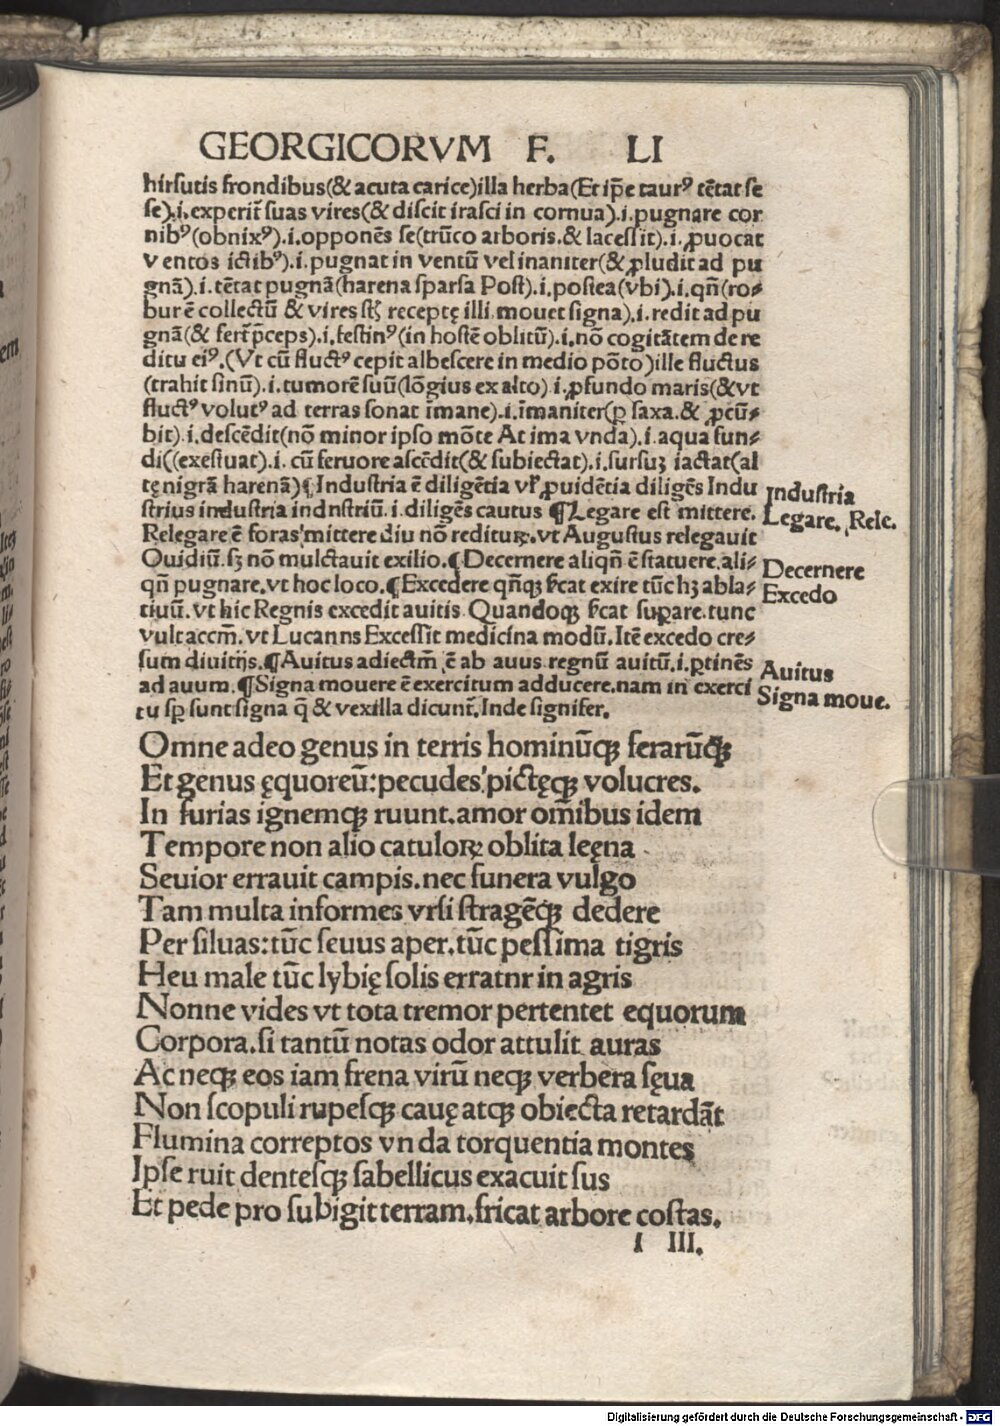 GEORGICORVM F. LI
hirsutis frondibus(& acuta carice)illa herba(Et ip̄e taurꝰ tētat se
se).i.experit̃ suas vires(& discit irasci in cornua).i.pugnare cor
nibꝰ(obnixꝰ).i.opponēs se(trūco arboris.& lacessit).i.ꝓuocat
ventos ictibꝰ).i.pugnat in ventū vel inaniter(& ꝓludit ad pu
gnā).i.tētat pugnā(harena sparsa Post).i.postea(vbi).i.qn̄(ro⸗
bur ē collectū & vires receptę illi mouet signa).i.redit ad pu
gnā(& fert̃ p̄ceps).i.festinꝰ(in hostē oblitū).i.nō cogitātem de re
ditu eiꝰ.(Vt cū fluctꝰ cepit albescere in medio pōto)ille fluctus
(trahit sinū).i.tumorē suū(lōgius ex alto).i.ꝓfundo maris(&vt
fluctꝰ volutꝰ ad terras sonat īmane).i.īmaniter(ꝑ saxa.& ꝓcū⸗
bit).i.descēdit(nō minor ipso mōte At ima vnda).i.aqua fun⸗
di((exestuat).i. cū feruore ascēdit(& subiectat).i.sursuꝫ iactat(al
tę nigrā harenā)¶Industria ē diligētia vl̓ ꝓuidētia diligēs Indu
strius industria indnstriū.i.diligēs cautus ¶Legare est mittere.
Relegare ē foras mittere diu nō redituꝝ.vt Augustus relegauit
Ouidiū.sꝫ nō mulctauit exilio.¶Decernere aliqn̄ ē statuere.ali⸗
qn̄ pugnare.vt hoc loco.¶Excedere qn̄qꝫ exire tūc hꝫ abla⸗
tiuū.vt hic Regnis excedit auitis Quandoqꝫ suꝑare.tunc
vult accm̄.vt Lucanns Excessit medicina modū.Itē excedo cre⸗
sum diuitijs.¶Auitus adiectm̄ ē ab auus.regnū auitū.i.ꝑtinēs
ad auum.¶Signa mouere ē exercitum adducere.nam in exerci
tu sꝑ sunt signa q̄ & vexilla dicunt̃.Inde signifer.
Industria
Legare. Rele.
Decernere
Excedo
Auitus
Signa moue.
Omne adeo genus in terris hominūqꝫ ferarūqꝫ
Et genus ęquoreū:pecudes pictęqꝫ volucres.
In furias ignemqꝫ ruunt.amor om̄ibus idem
Tempore non alio catuloꝝ oblita leęna
Seuior errauit campis.nec funera vulgo
Tam multa informes vrsi stragēqꝫ dedere
Per siluas:tūc seuus aper.tūc pessima tigris
Heu male tūc lybię solis erratnr in agris
Nonne vides vt tota tremor pertentet equorum
Corpora.si tantū notas odor attulit auras
Ac neqꝫ eos iam frena virū neqꝫ verbera sęua
Non scopuli rupesqꝫ cauę atqꝫ obiecta retardāt
Flumina correptos vnda torquentia montes
Ipse ruit dentesqꝫ sabellicus exacuit sus
Et pede pro subigit terram.fricat arbore costas.
I III.
Digitalisierung gefördert durch die Deutsche Forschungsgemeinschaft - DFG